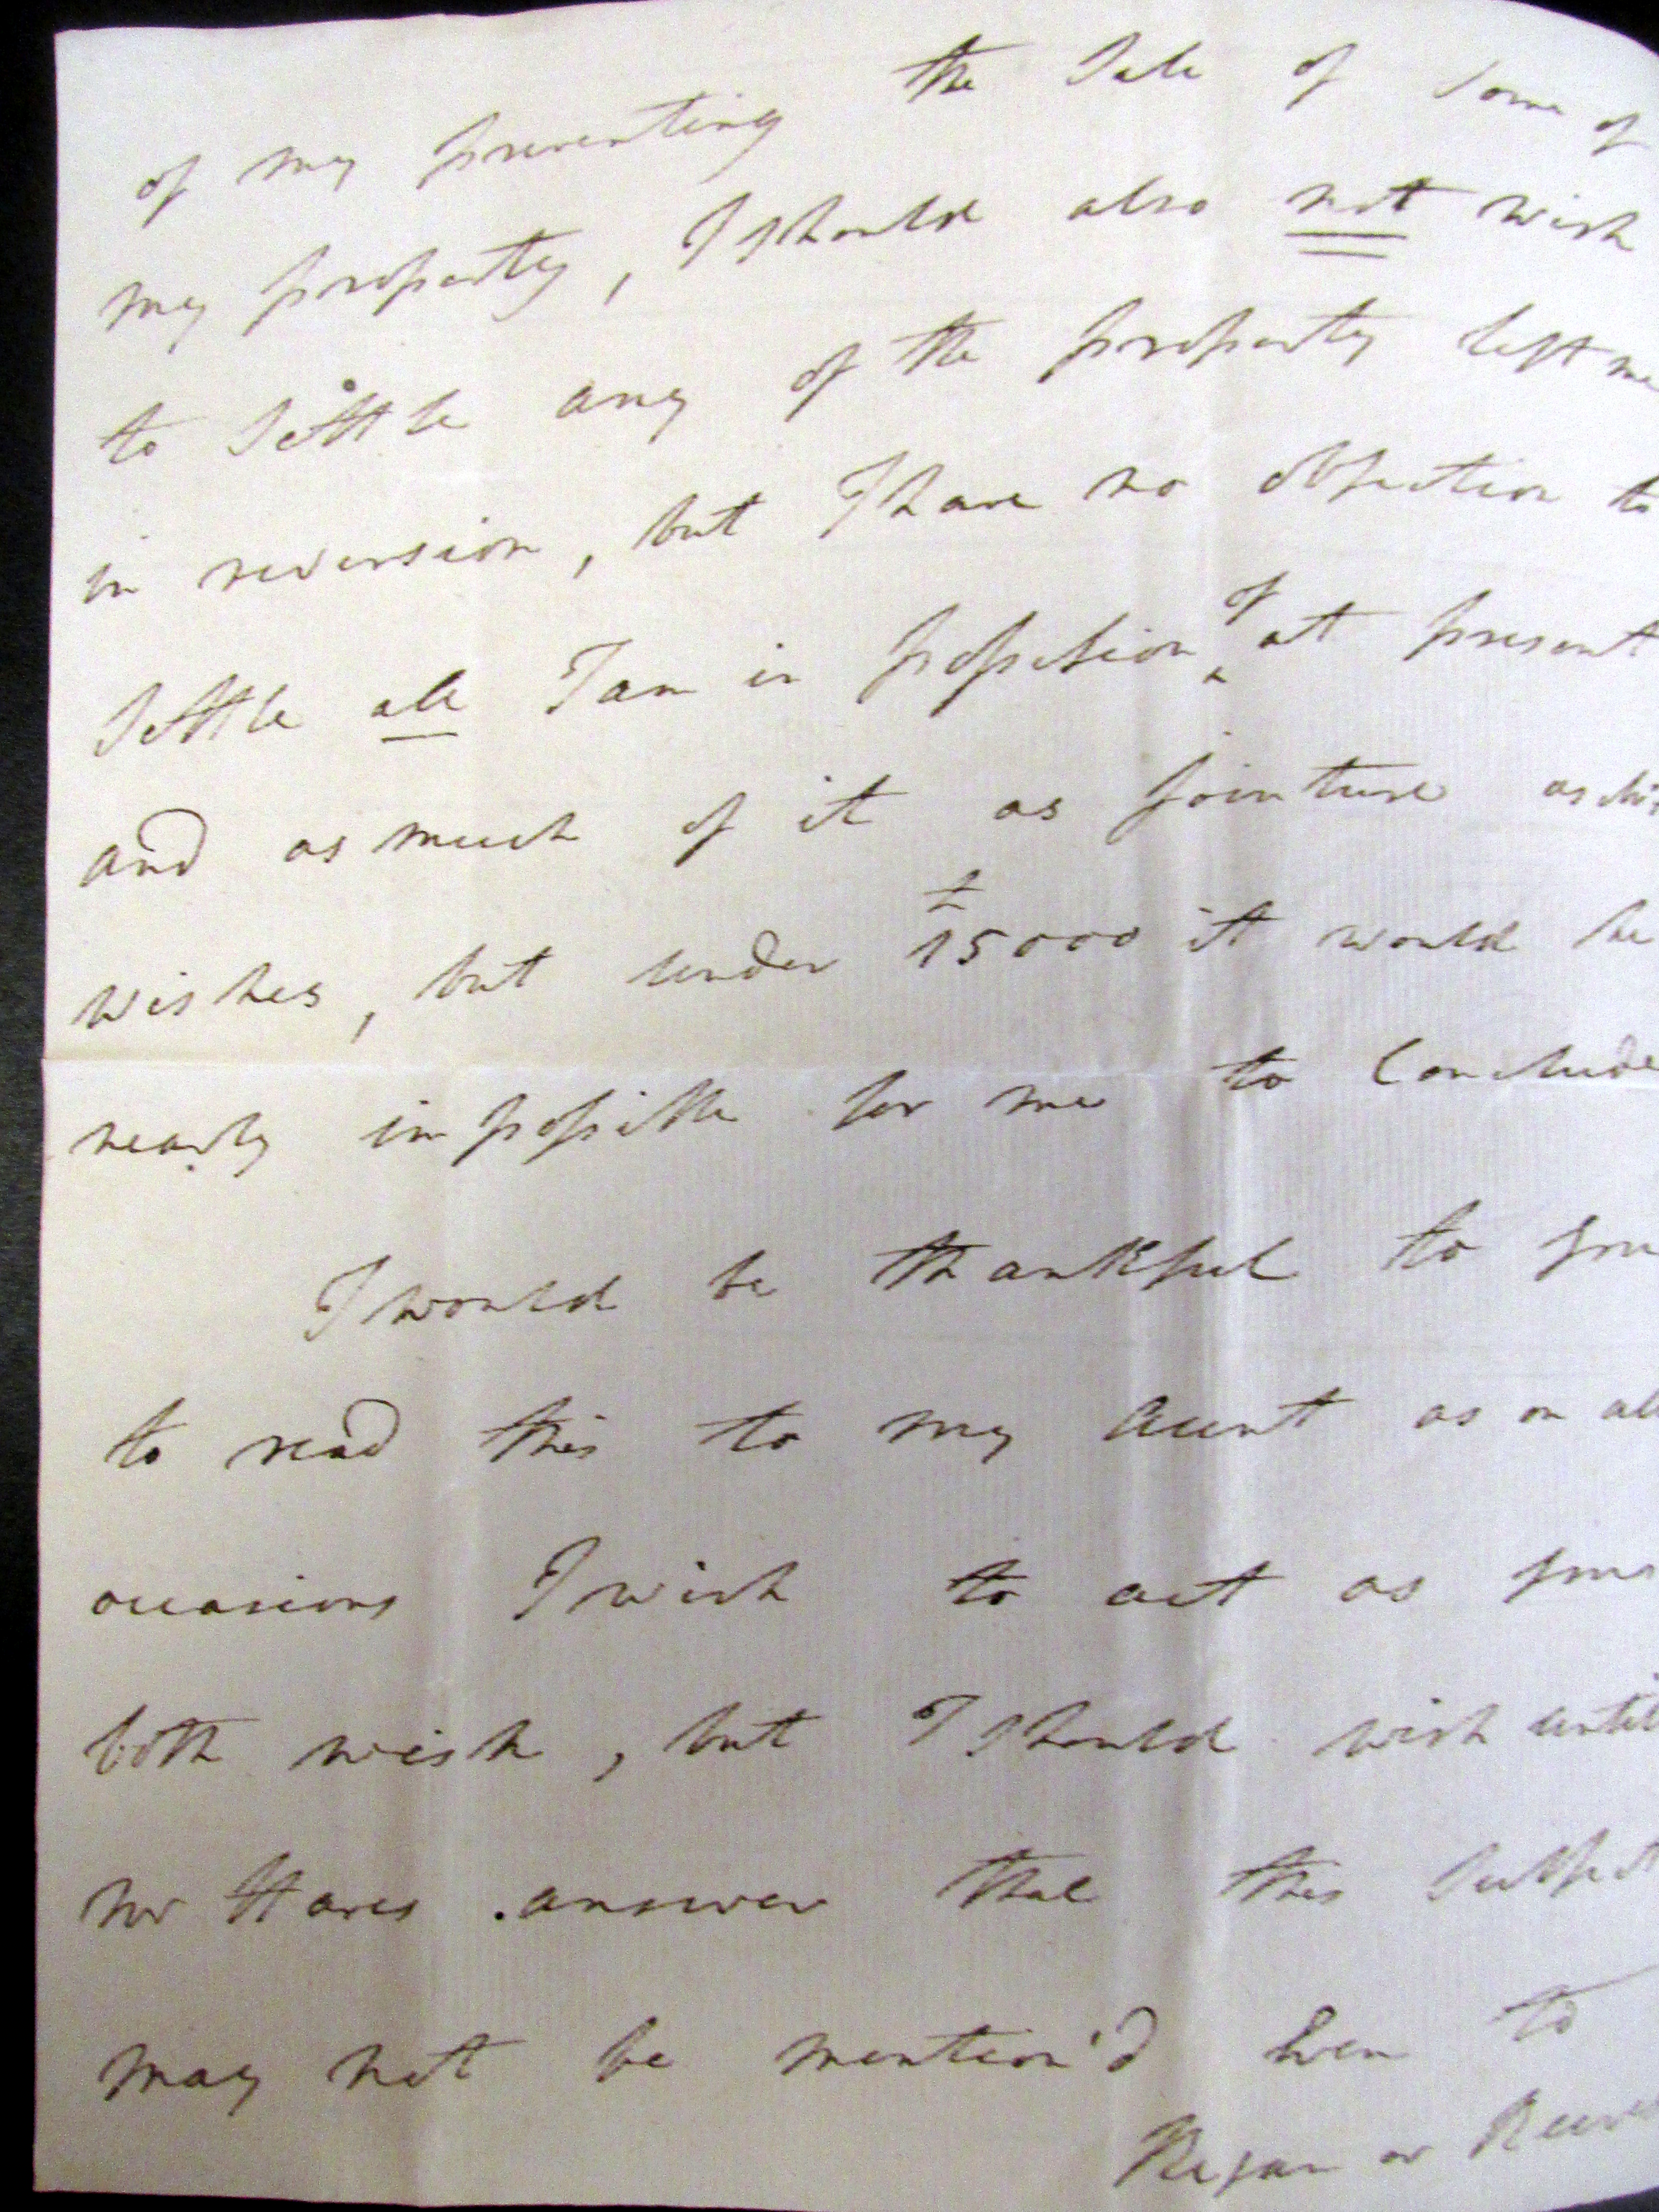 of my preventing the Sale of Some of
my property, I should also not wish
to Settle any of the property left me
in reversion, but I have no objection to
Settle all I am in possession of at present
and as much of it as jointure as
wishes, but under £15000 it would be
nearly impossible for me to Conclude
I would be thankful to you
to read this to my Aunt as on all
occasions I wish to act as you
both wish, but I should wish until
Mr Hares answer that this Subject
may not be mention'd Even to
or